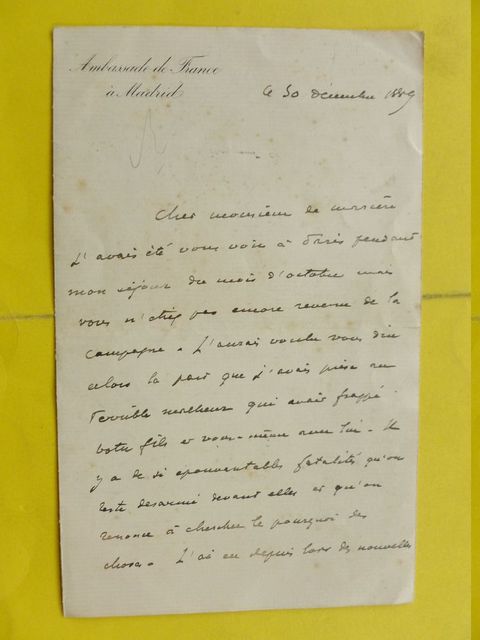 Ambassade de France
à Madrid
le 30 décembre 1889
Cher monsieur de
J'avais été vous voir à Paris pendant
mon séjour du mois d'octobre mais
vous n'étiez pas encore revenu de la
campagne. J'aurais voulu vous dire
alors la part que j'avais prise au
terrible malheur qui avait frappé
votre fils et vous-même avec lui. Il
y a de si épouvantables fatalités qu'on
reste désarmé devant elles et qu'on
renonce à chercher le pourquoi des
choses. J'ai eu depuis lors des nouvelles